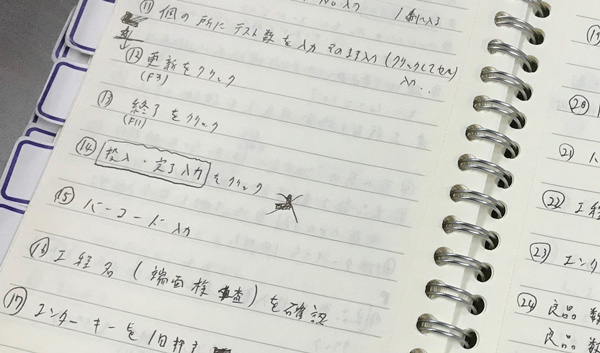 No入力
⑪個の所にテスト数を入力 そのまま入
⑫更新をクリック
(F3)
⑬終了をクリック
(F11)
⑭投入・完了入力をクリック
⑮バーコード入力
⑯工程名(端面検査)を確認
⑰エンターキーを1回押す
⑳
㉑
㉒工程
㉓エンタ
㉔良品数
良品数